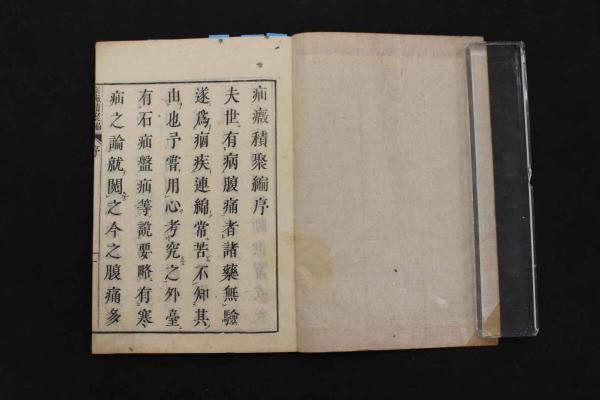 疝癥積聚編序
夫世有病腹痛者諸藥無驗
遂爲痼疾連綿常苦不知其
由也予嘗用心考究之外臺
有石疝盤疝等說要略有寒
疝之論就閱之今之腹痛多